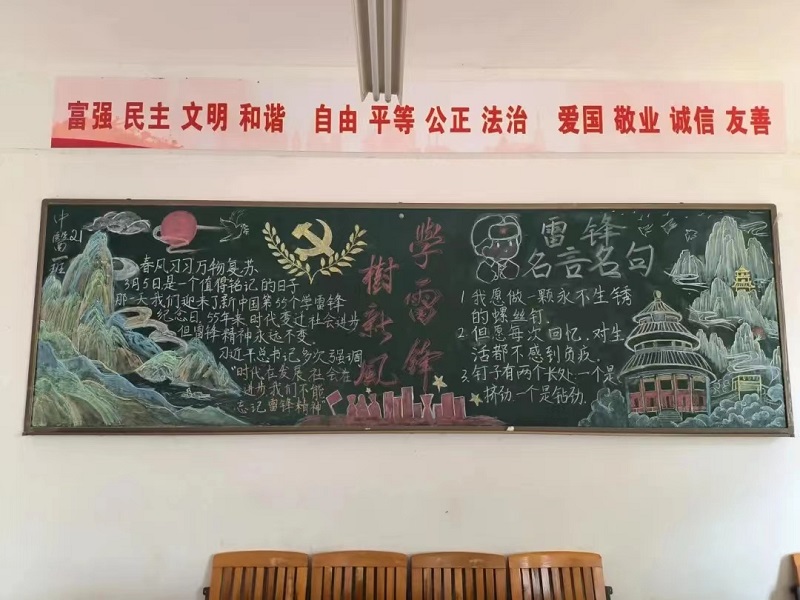 富强 民主 文明 和谐 自由 平等 公正 法治 爱国 敬业 诚信 友善
21
班
春风习习万物复苏
3月5日是一个值得铭记的日子
那一天我们迎来了新中国第55个学雷锋
纪念日,55年来,时代变迁社会进步
但雷锋精神永远不变.
习近平总书记多次强调
"时代在发展,社会在
进步我们不能
忘记雷锋精神"
學雷鋒
樹新風
雷锋
名言名句
1 我愿做一颗永不生锈
的螺丝钉.
2.但愿每次回忆,对生
活都不感到负疚.
3.钉子有两个长处:一个是
挤劲一个是钻劲.